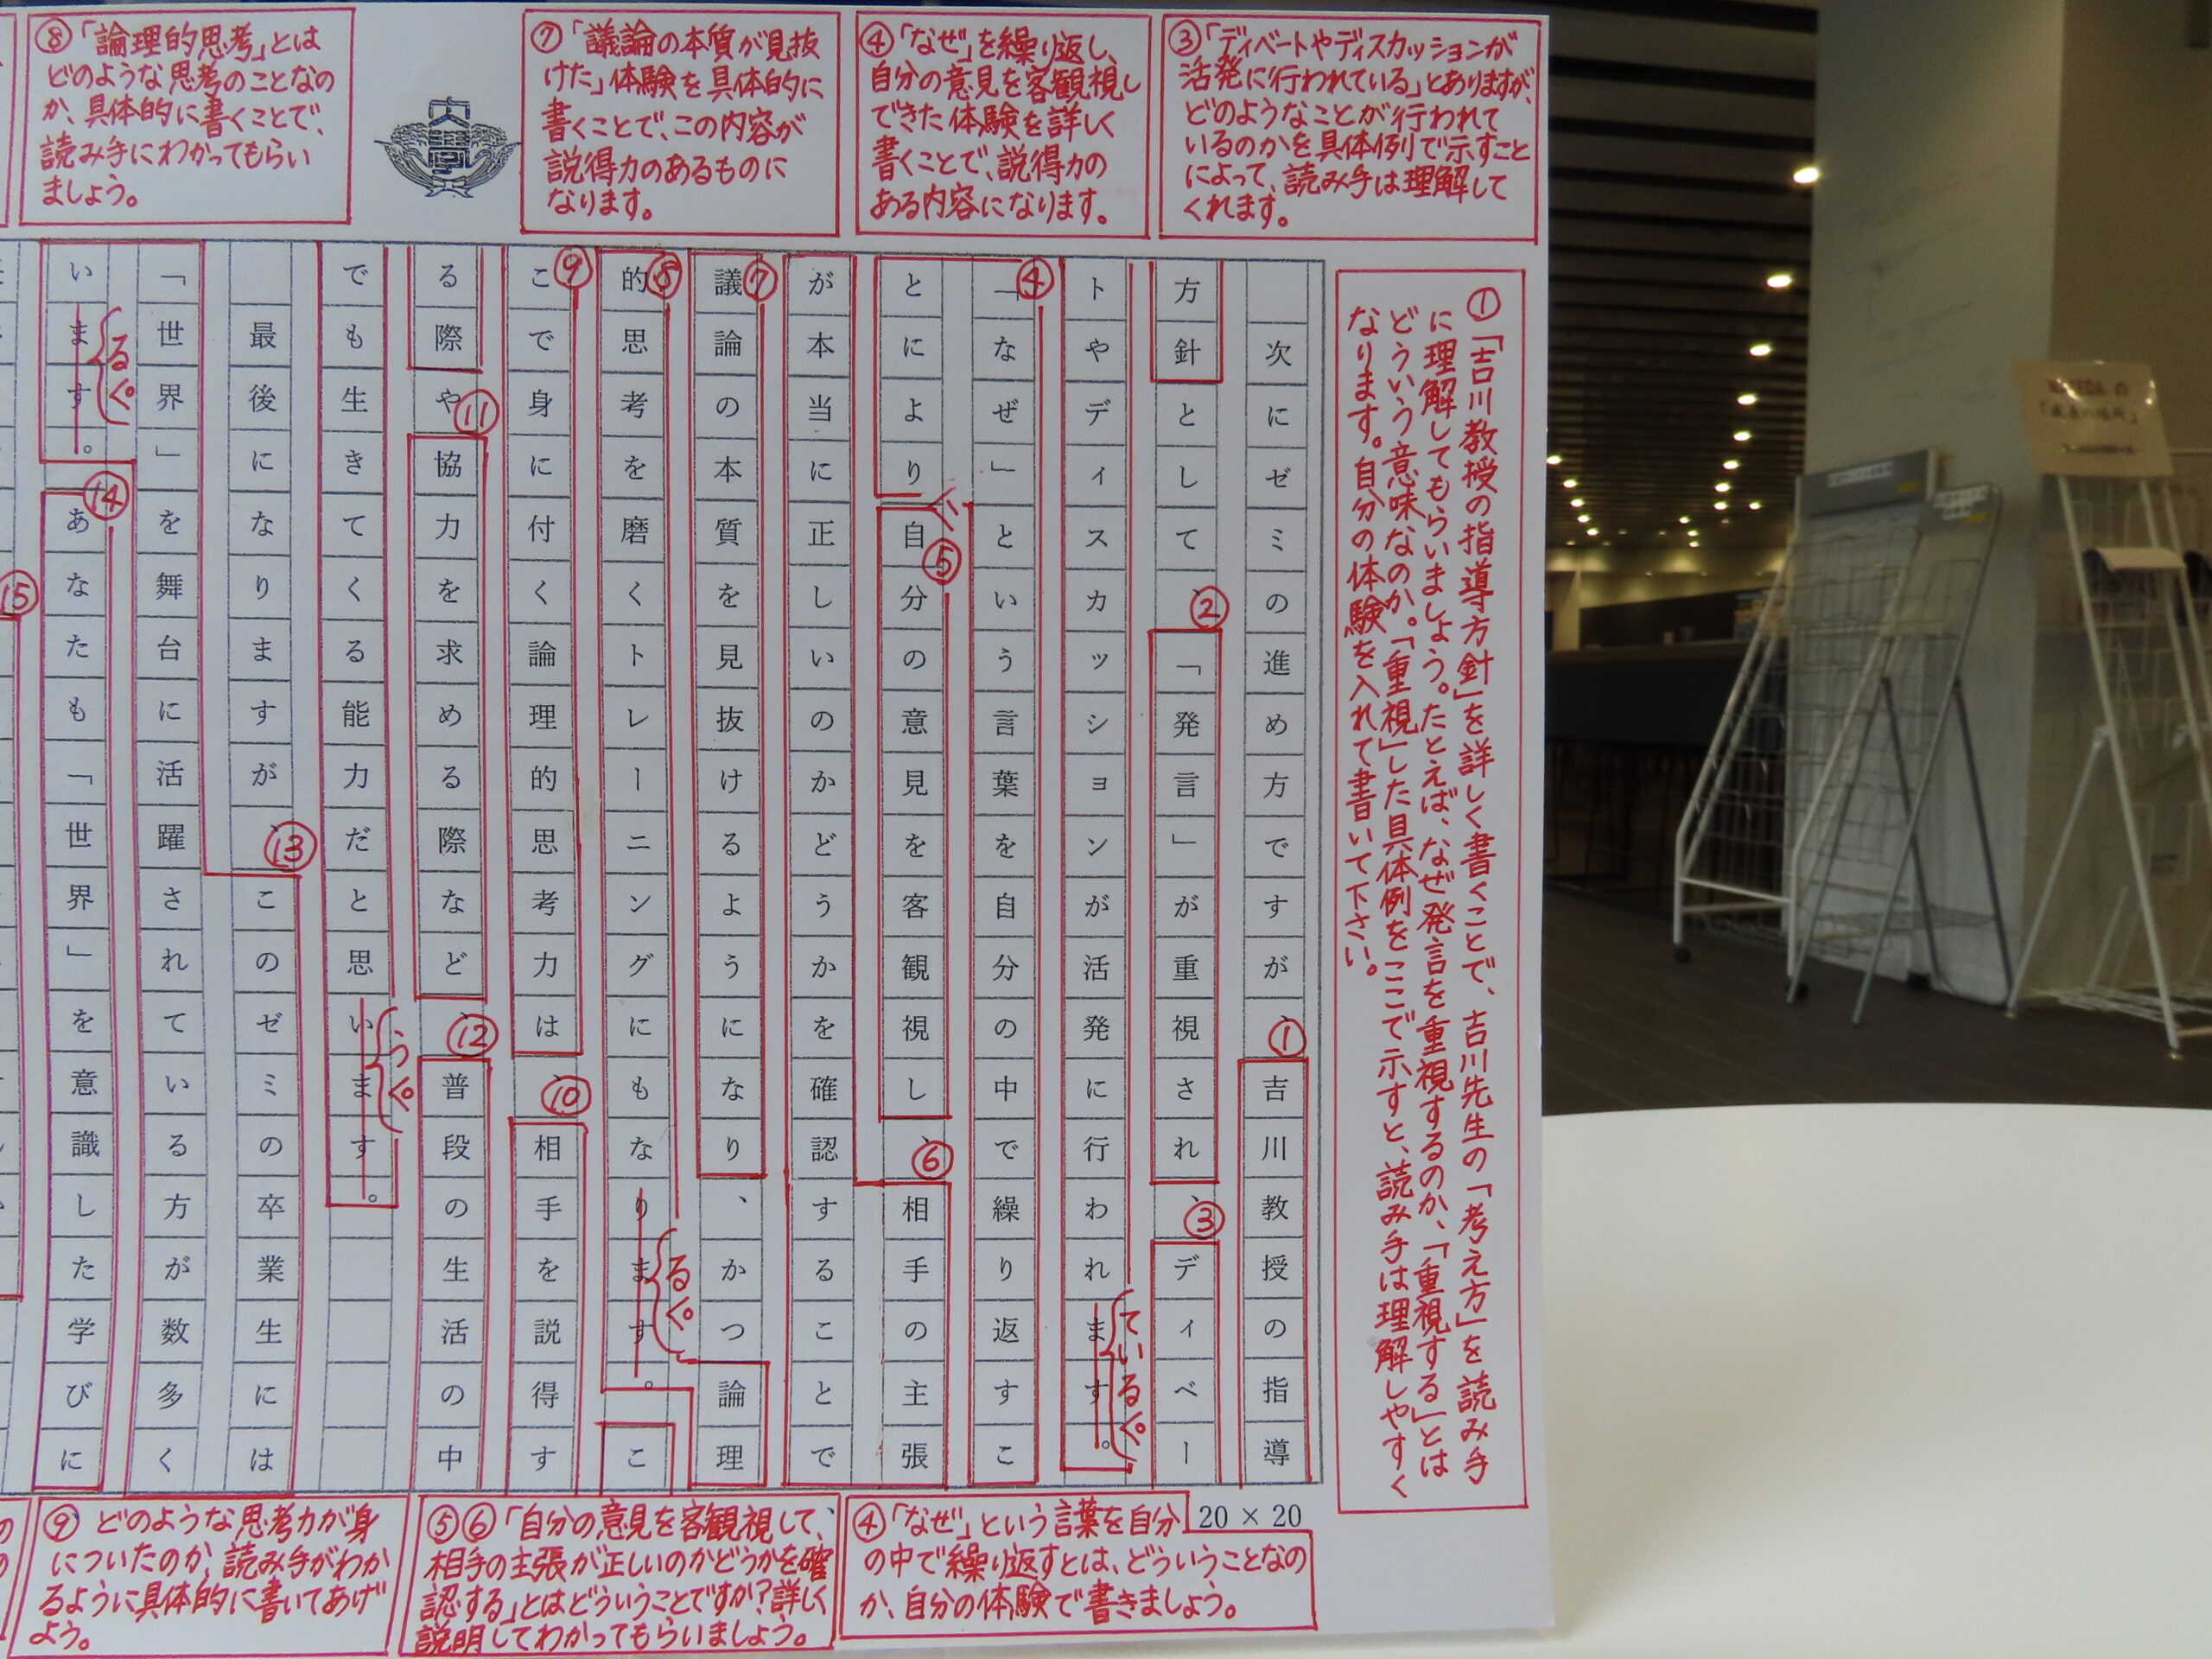 ③「ディベートやディスカッションが
活発に行われている」とありますが、
どのようなことが行われて
いるのかを具体例で示すこと
によって、読み手は理解して
くれます。
④「なぜ」を繰り返し、
自分の意見を客観視し
できた体験を詳しく
書くことで、説得力の
ある内容になります。
⑦「議論の本質が見抜
けた」体験を具体的に
書くことで、この内容が
説得力のあるものに
なります。
大學
⑧「論理的思考」とは
どのような思考のことなの
か、具体的に書くことで、
読み手にわかってもらい
ましょう。
①「吉川教授の指導方針」を詳しく書くことで、吉川先生の「考え方」を読み手
に理解してもらいましょう。たとえば、なぜ発言を重視するのか、「重視する」とは
どういう意味なのか。「重視」した具体例をここで示すと、読み手は理解しやすく
なります。自分の体験を入れて書いて下さい。
次にゼミの進め方ですが、①吉川教授の指導
方針として、②「発言」が重視され、③ディベー
トやディスカッションが活発に行われます。
ている。
④「なぜ」という言葉を自分の中で繰り返すこ
とにより、⑤自分の意見を客観視し、⑥相手の主張
が本当に正しいのかどうかを確認することで
⑦議論の本質を見抜けるようになり、かつ論理
⑧的思考を磨くトレーニングにもなります。こ
る。
⑨こで身に付く論理的思考力は、⑩相手を説得す
る際や⑪協力を求める際など、⑫普段の生活の中
でも生きてくる能力だと思います。
う。
最後になりますが、⑬このゼミの卒業生には
「世界」を舞台に活躍されている方が数多く
います。⑭あなたも「世界」を意識した学びに
る。
⑮
20 × 20
④「なぜ」という言葉を自分
の中で繰り返すとは、どういうことなの
か、自分の体験で書きましょう。
⑤⑥「自分の意見を客観視して、
相手の主張が正しいのかどうかを確
認する」とはどういうことですか?詳しく
説明してわかってもらいましょう。
⑨ どのような思考力が身
についたのか、読み手がわか
るように具体的に書いてあげ
よう。